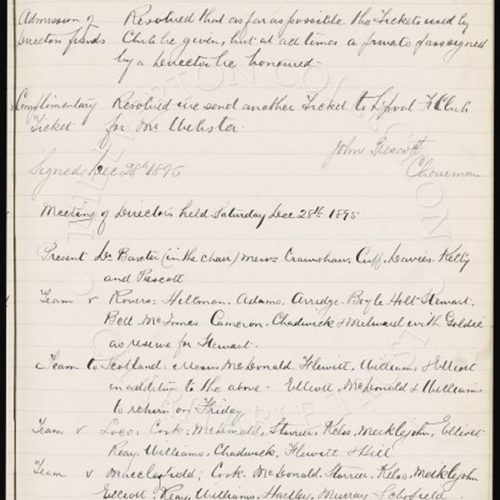 Admission of Resolved that as far as possible the Tickets used by
Directors friends Club be given, but at all times a private pass signed
by a Director be honoured.
Complimentary Resolved we send another Ticket to L'pool F. Club
Ticket for Mr Webster
John Prescott
Signed Dec 28th 1895 Chairman
Meeting of Directors held Saturday Dec 28th 1895
Present Dr Baxter (in the chair) Messrs Crawshaw, Cuff, Davies, Kelly
and Prescott
Team v Rovers: Hillman, Adams, Arridge, Boyle Holt Stewart.
Bell. McInnes Cameron, Chadwick & Milward with Goldie
as reserve for Stewart.
Team to Scotland: Messrs McDonald, Flewitt, Williams & Elliott
in addition to the above. Elliott, McDonald & Williams
to return on Friday
Team v Loco: Cook: McDonald, Storrier, Kelso, Meiklejohn, Elliott
Reay, Williams, Chadwick, Flewitt & Hill
Team v Macclesfield; Cook. McDonald. Storrier, Kelso, Meiklejohn
Elliott, Reay, Williams, Hartley, Murray, Schofield